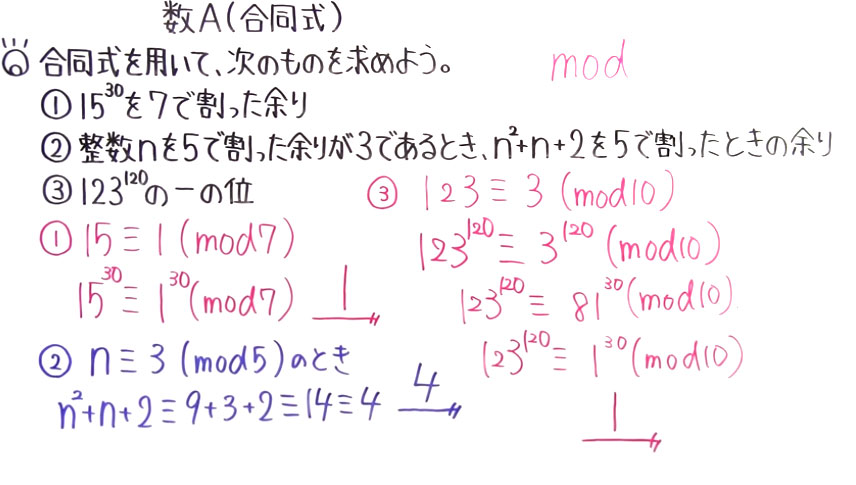 数A(合同式)
合同式を用いて、次のものを求めよう。
mod
① 15³⁰を7で割った余り
② 整数nを5で割った余りが3であるとき、n²+n+2を5で割ったときの余り
③ 123¹²⁰の一の位
① 15≡1 (mod7)
15³⁰≡1³⁰(mod7) 1
② n≡3 (mod5)のとき
n²+n+2≡9+3+2≡14≡4 4
③ 123≡3 (mod10)
123¹²⁰≡3¹²⁰(mod10)
123¹²⁰≡81³⁰(mod10)
123¹²⁰≡1³⁰(mod10)
1